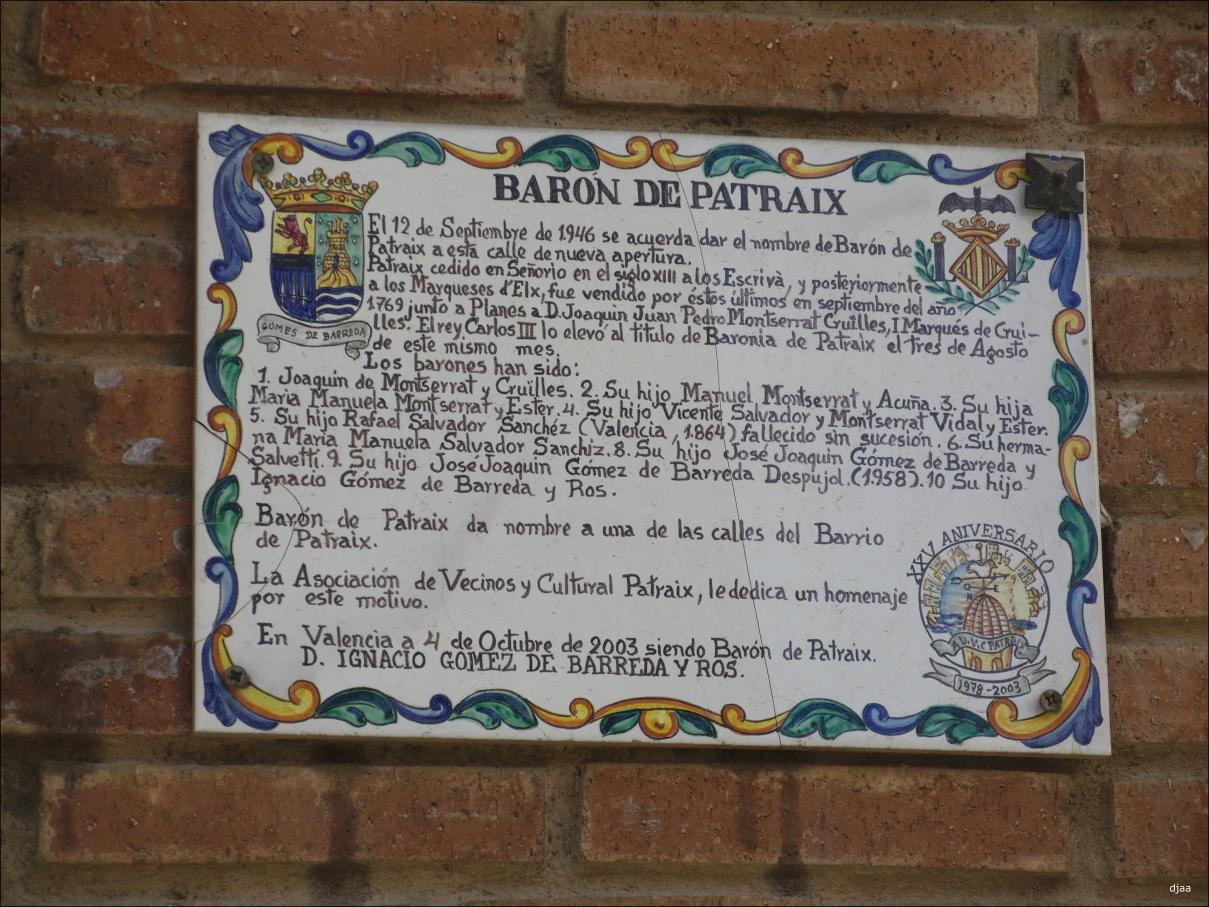 BARÓN DE PATRAIX
El 12 de Septiembre de 1.946 se acuerda dar el nombre de Barón de
Patraix a esta calle de nueva apertura.
Patraix cedido en Señorio en el siglo XIII a los Escrivà, y posteriormente
a los Marqueses d'Elx, fue vendido por éstos últimos en septiembre del año
1769 junto a Planes a D. Joaquin Juan Pedro Montserrat Cruilles, I Marqués de Crui-
lles. El rey Carlos III lo elevó al titulo de Baronia de Patraix el tres de Agosto
de este mismo mes.
Los barones han sido:
1. Joaquin de Montserrat y Cruilles. 2. Su hijo Manuel Montserrat y Acuña. 3. Su hija
Maria Manuela Montserrat y Ester. 4. Su hijo Vicente Salvador y Montserrat Vidal y Ester.
5. Su hijo Rafael Salvador Sanchéz (Valencia, 1.864) fallecido sin sucesión. 6. Su herma-
na Maria Manuela Salvador Sanchiz. 8. Su hijo José Joaquin Gómez de Barreda y
Salvetti. 9. Su hijo José Joaquin Gómez de Barreda Despujol. (1.958). 10 Su hijo
Ignacio Gómez de Barreda y Ros.
Barón de Patraix da nombre a una de las calles del Barrio
de Patraix.
La Asociación de Vecinos y Cultural Patraix, le dedica un homenaje
por este motivo.
En Valencia a 4 de Octubre de 2003 siendo Barón de Patraix.
D. IGNACIO GOMEZ DE BARREDA Y ROS.
GOMES DE BARREDA
XXV ANIVERSARIO
A.V.V.C PATRAIX
1978-2003
djaa